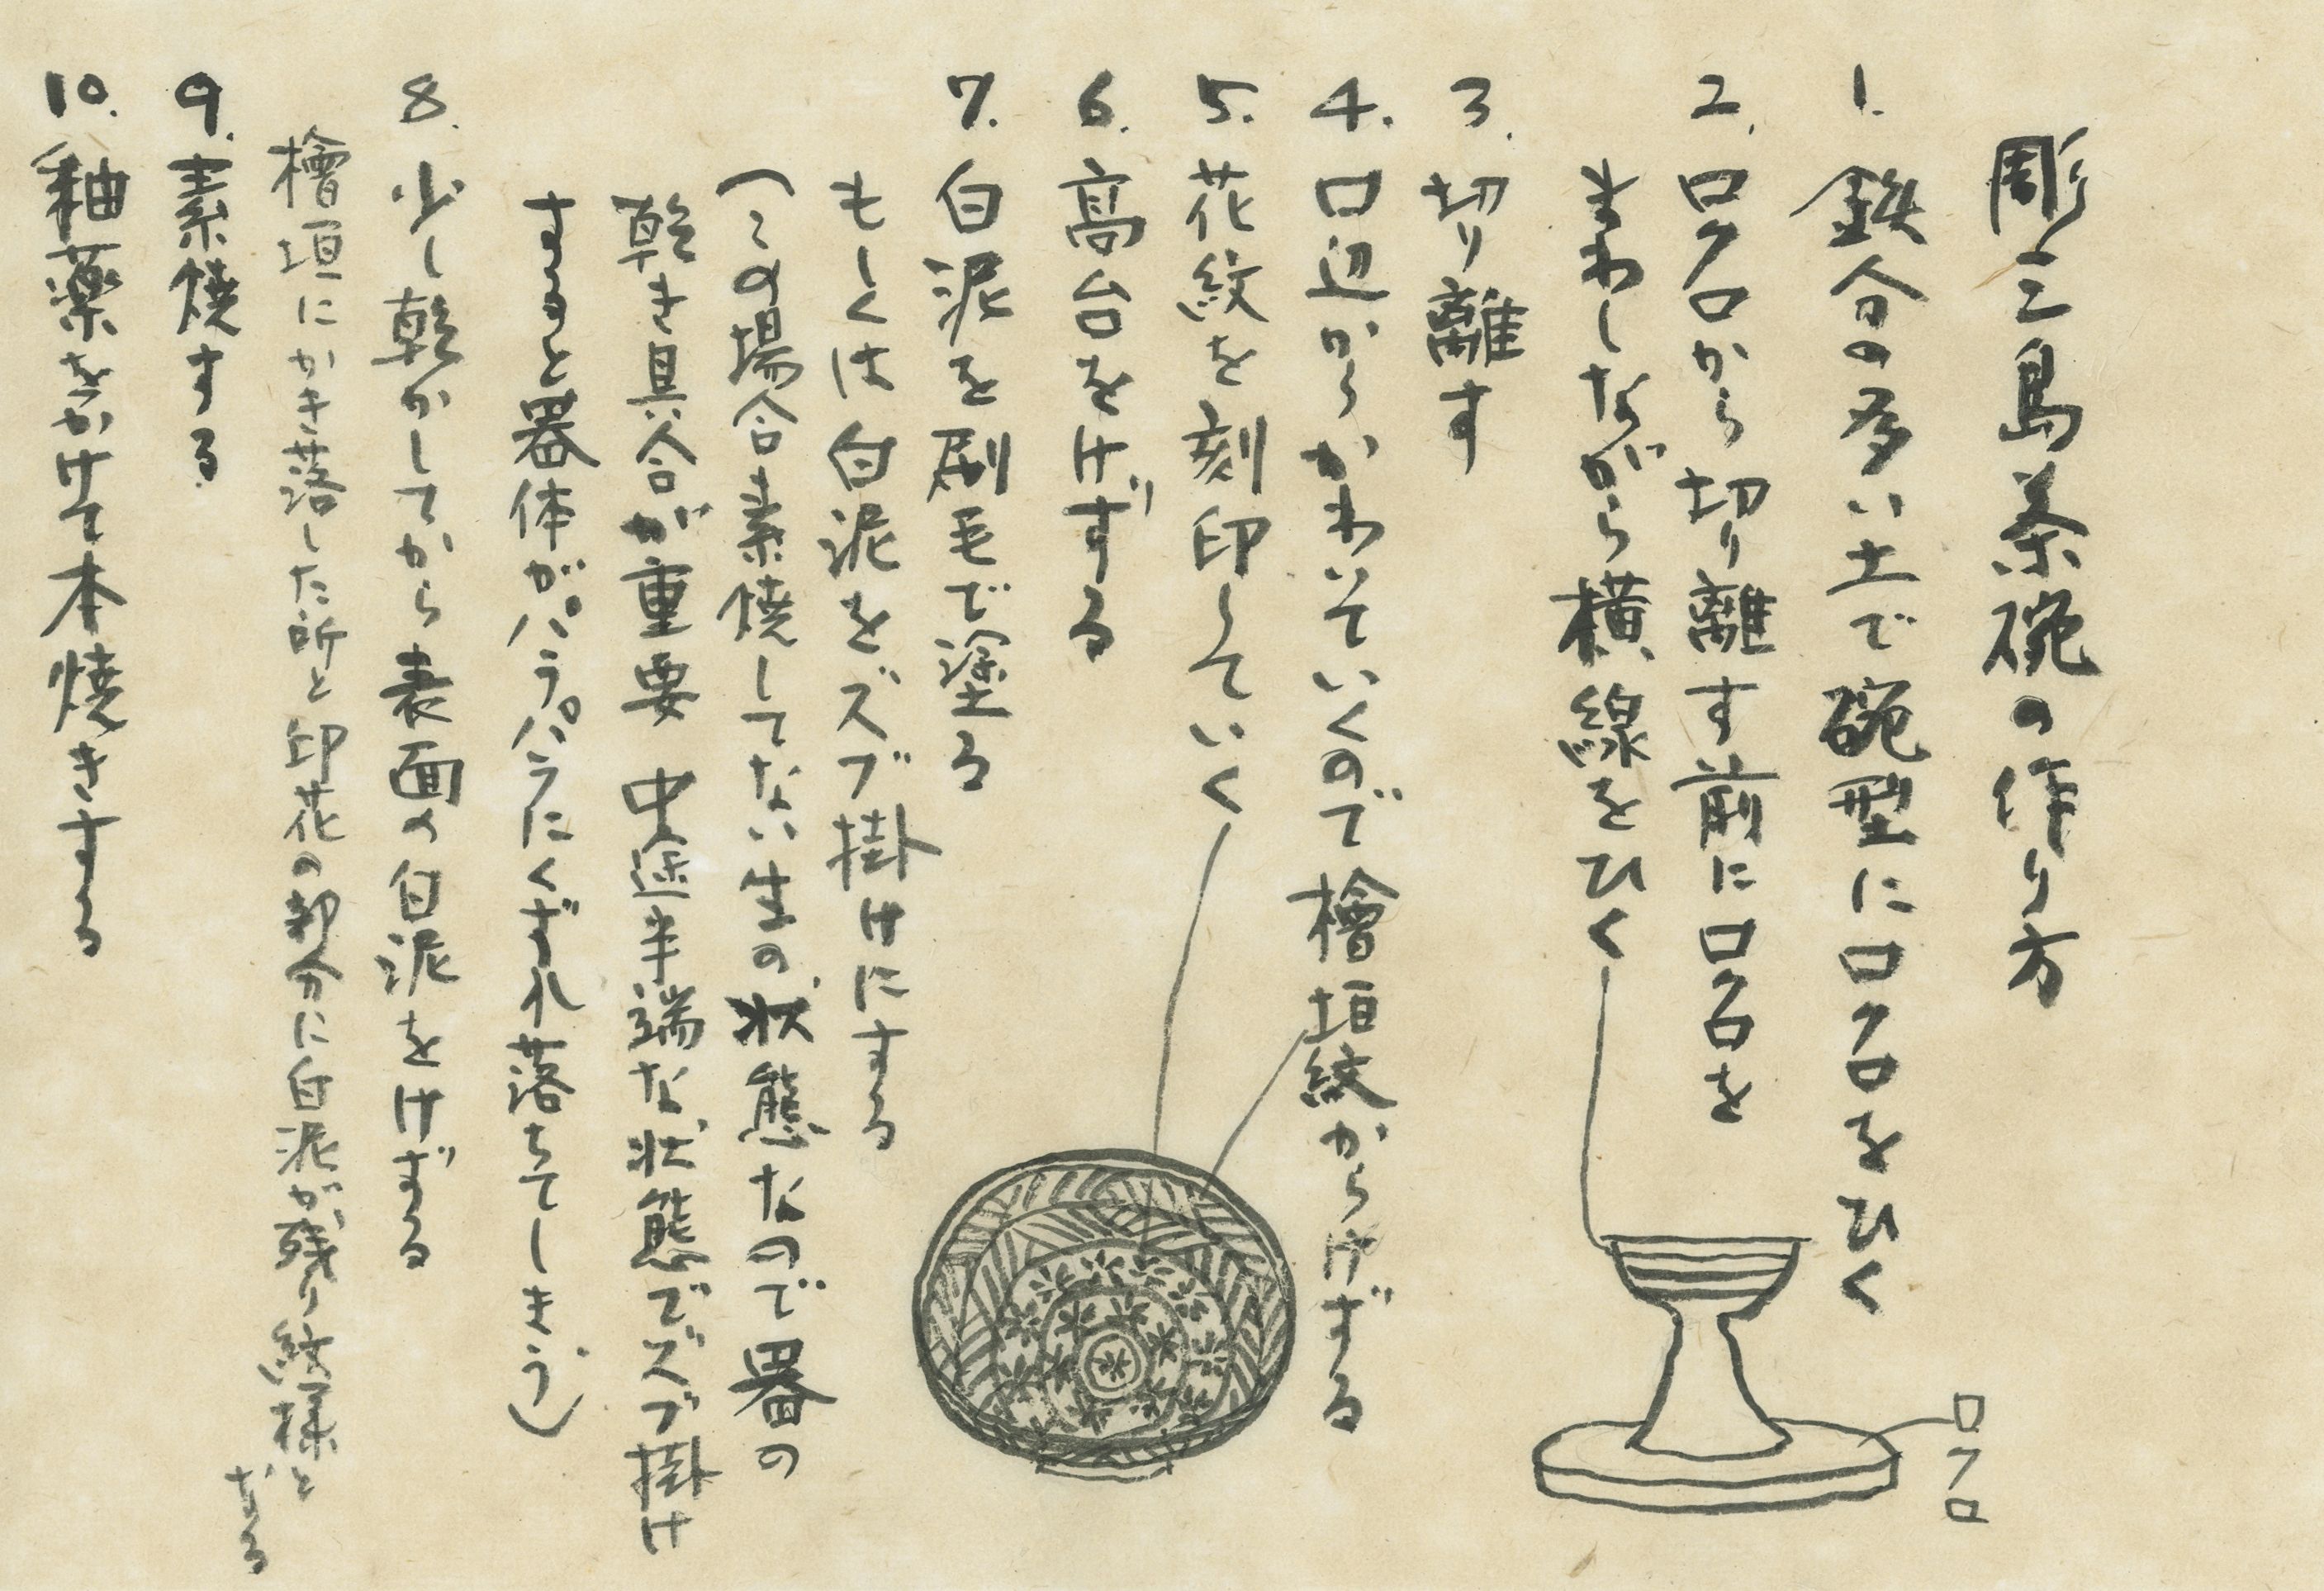 彫三島茶碗の作り方
1. 鉄分の多い土で碗型にロクロをひく
2. ロクロから切り離す前にロクロを
まわしながら横線をひく
3. 切り離す
4. 口辺からかわいていくので檜垣紋からけずる
5. 花紋を刻印していく
6. 高台をけずる
7. 白泥を刷毛で塗る
もしくは白泥をズブ掛けにする
(この場合素焼してない生の状態なので器の
乾き具合が重要 中途半端な状態でズブ掛け
すると器体がパラパラにくずれ落ちてしまう)
8. 少し乾かしてから表面の白泥をけずる
檜垣にかき落した所と印花の部分に白泥が残り紋様と
なる
9. 素焼する
10. 釉薬をかけて本焼きする
ロクロ